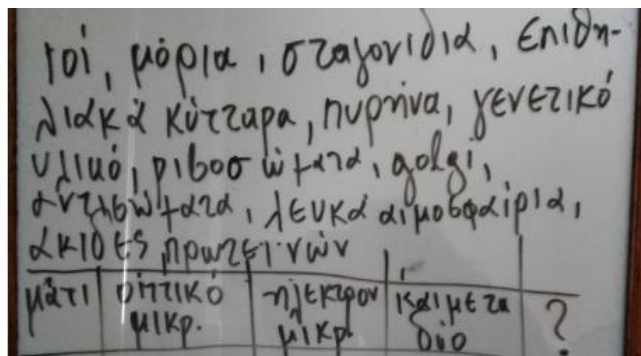 ιοί, μόρια, σταγονίδια, επιθη-
λιακά κύτταρα, πυρήνα, γενετικό
υλικό, ριβοσώματα, golgi,
αντισώματα, λευκά αιμοσφαίρια,
ακίδες πρωτεϊνών
μάτι οπτικό μικρ. ηλεκτρον μικρ. και με τα δύο ?